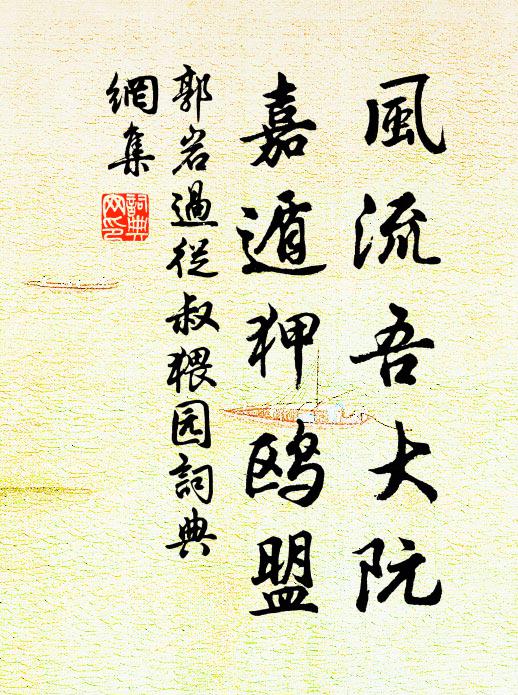 風流吾大阮
嘉遁狎鸥盟
郭岩過從叔猥园詞典
網集
詞典
网印